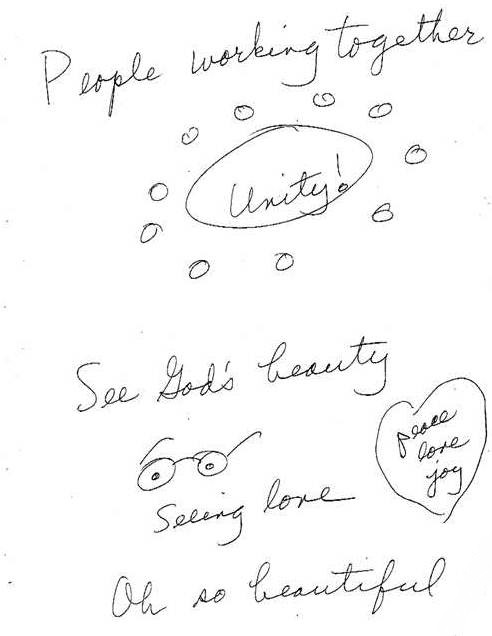 People working together
Unity!
See God's beauty
peace
love
joy
Seeing love
Oh so beautiful